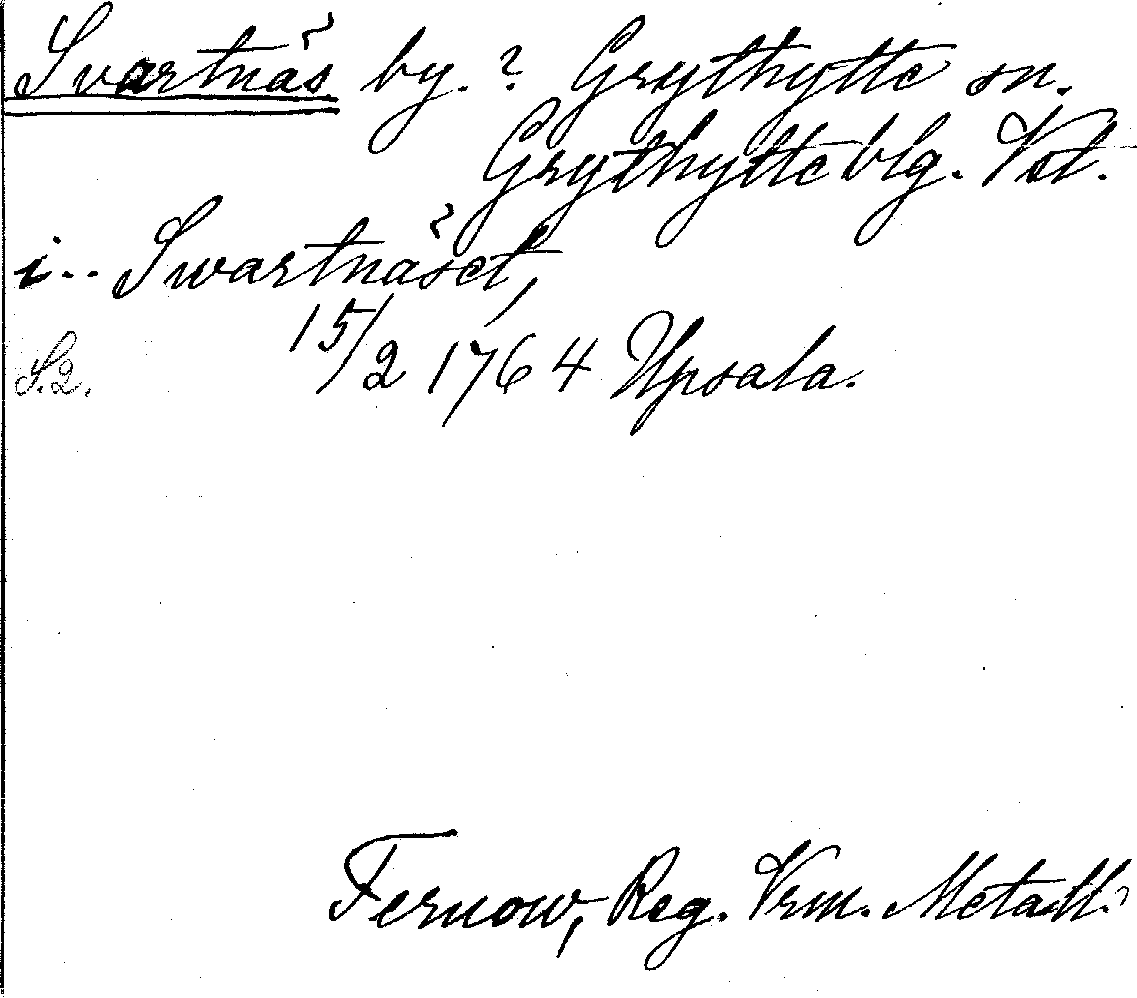 Svartnäs by. ? Grythytte sn.
Grythytte blg. Vst.
i.. Swartnäset,
S.2. 15/2 1764 Upsala.
Fernow, Reg. Vrm. Metall.